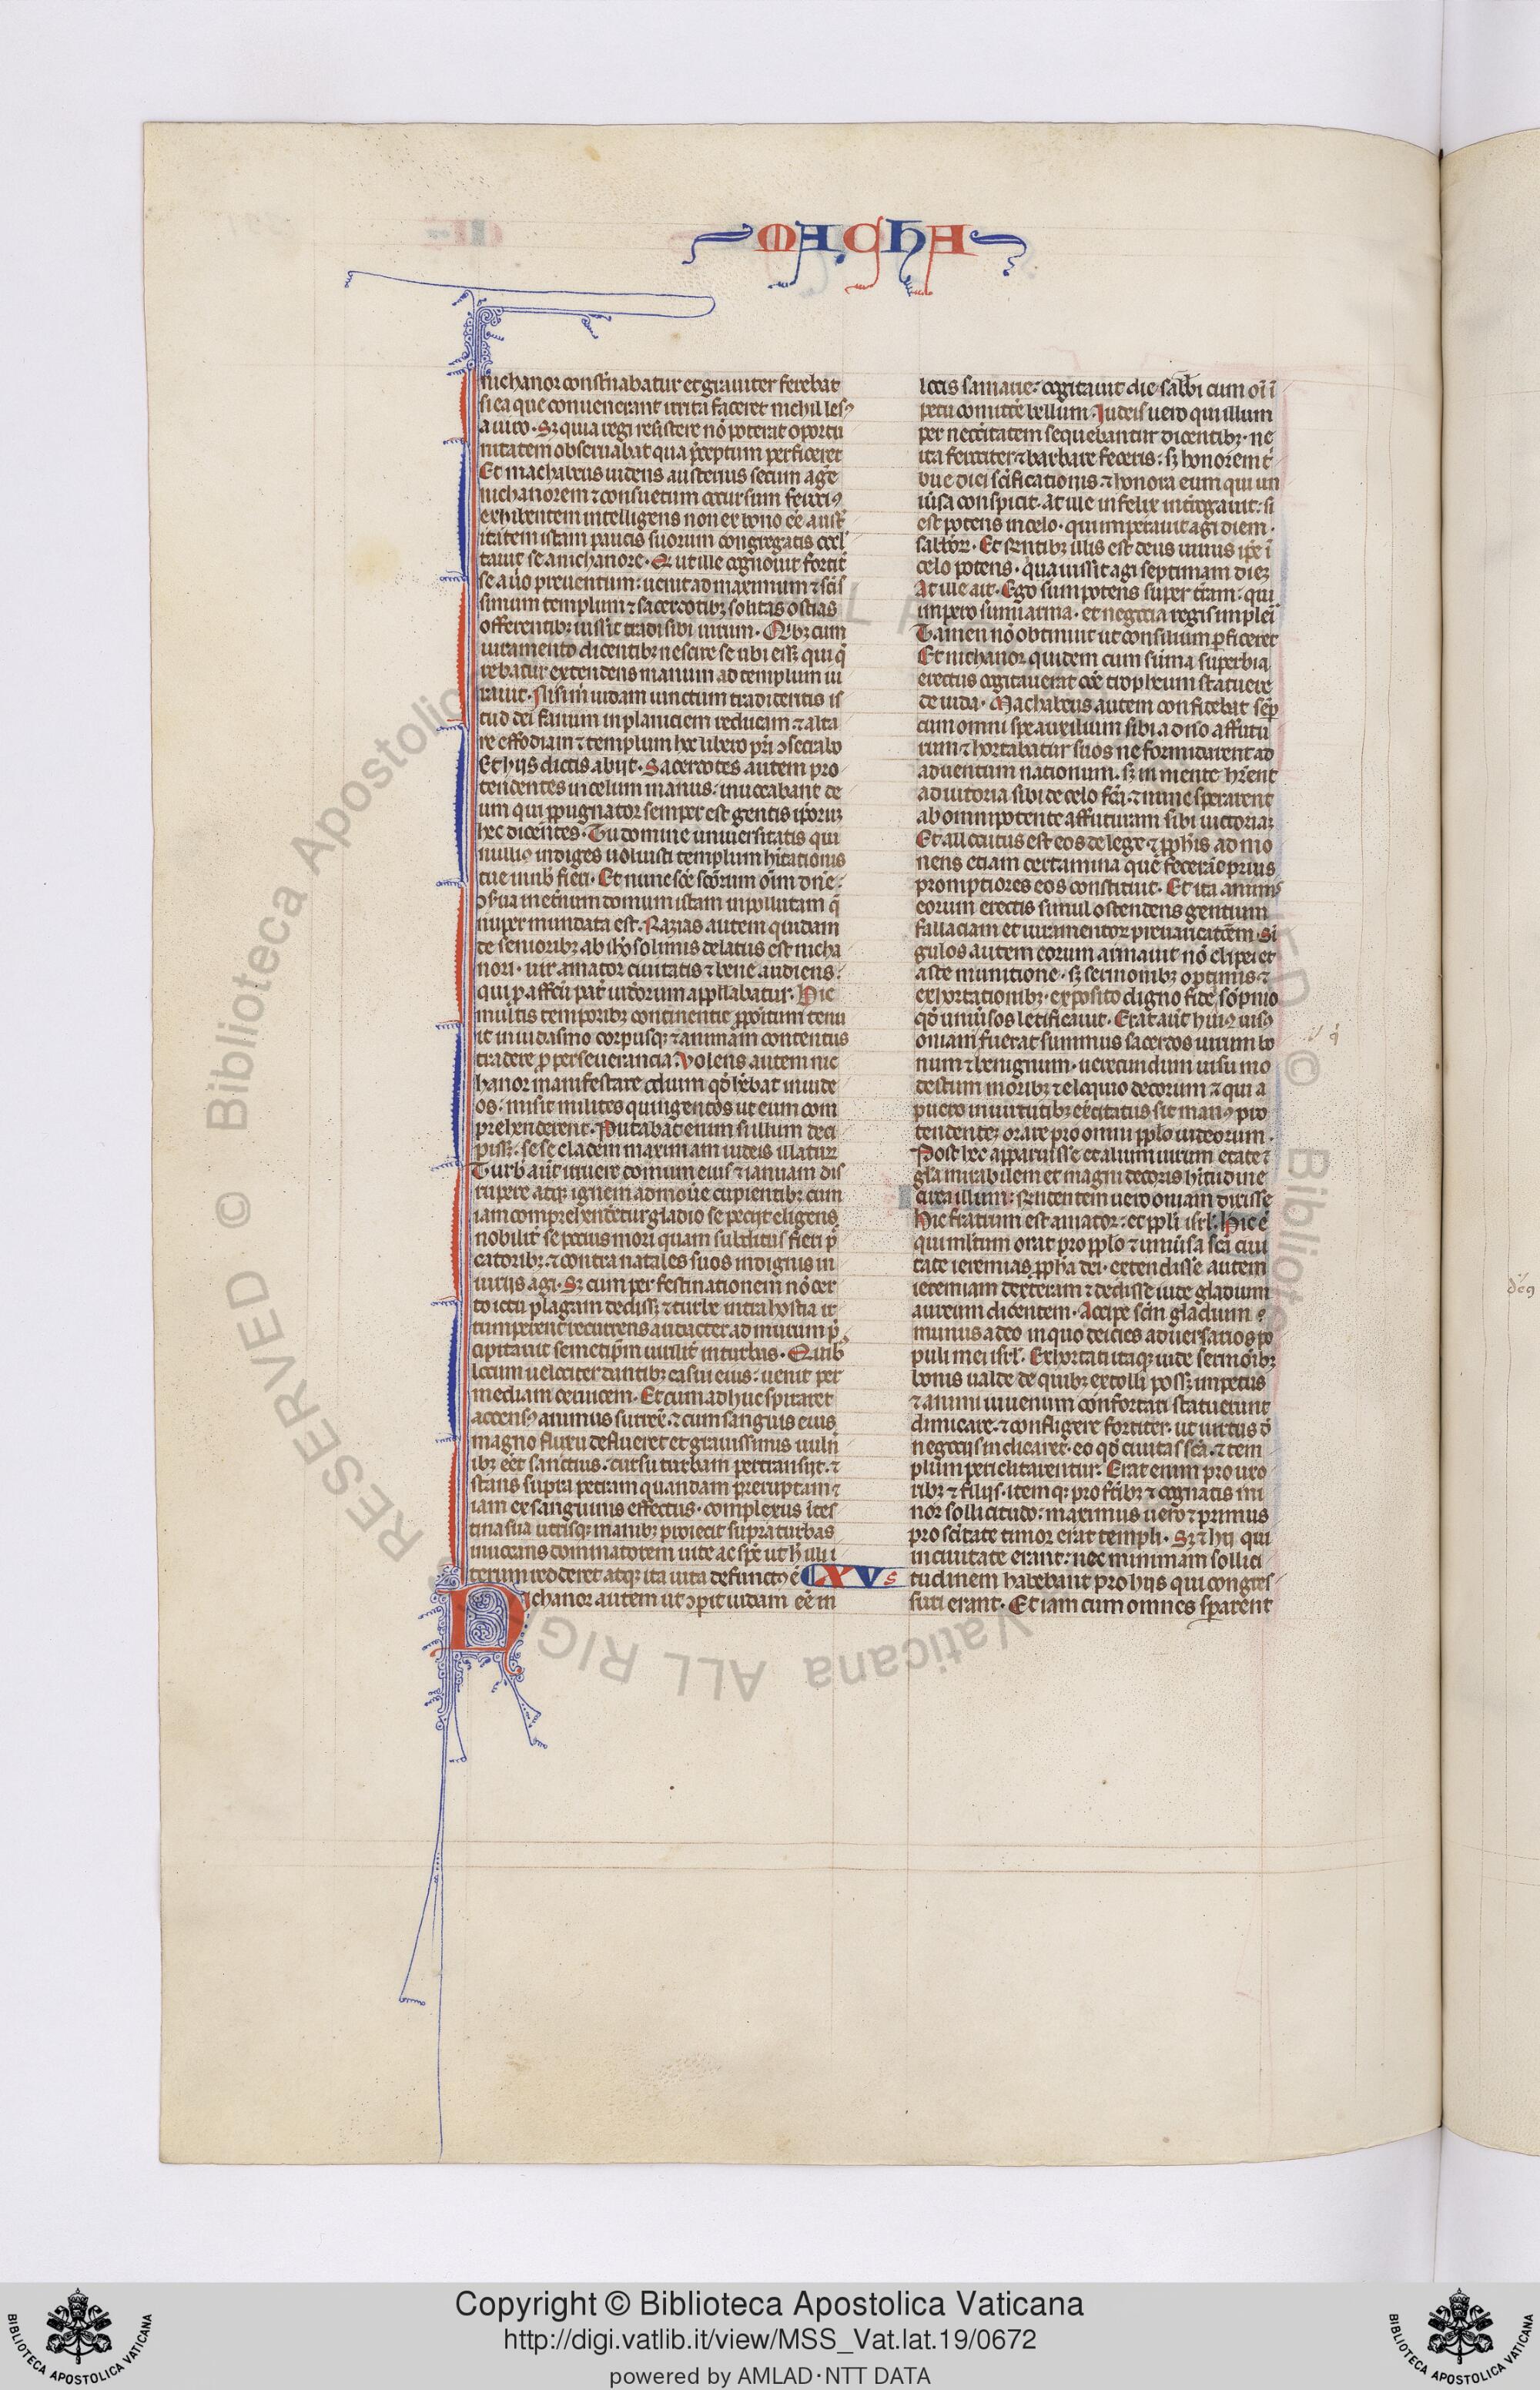 MACHA
nichanor consternabatur et grauiter ferebat
si ea que conuenerant irrita faceret nichil lesꝰ
a uiro. Sꝫ quia regi resistere nō poterat oportu
nitatem obseruabat qua p̄ceptum perficeret
Et machabeus uidens austerius secum agē
nichanorem ⁊ consuetum occursum ferociꝰ
exhibentem intelligens non ex bono eē aust̄
itatem istam paucis suorum congregatis occl̄
tauit se a nichanore. Q ut ille cognouit fortit̄
se a uīo preuentum: uenit ad maximum ⁊ scīs
simum templum ⁊ sacerdotibꝫ solitas ostias
offerentibꝫ iussit tradi sibi uirum. Qibꝫ cum
iuramento dicentibꝫ nescire se ubi essꝫ qui q̄
rebatur extendens manum ad templum iu
rauit. Nisi m̄ iudam uinctum tradideritis is
tud dei fanum in planiciem reducam ⁊ alta
re effodiam ⁊ templum hoc libero pr̄i ↄsecrabo
Et hijs dictis abijt. Sacerdotes autem pro
tendentes in celum manus: inuocabant de
um qui ꝓpugnator semper est gentis ip̄oruꝫ
hec dicentes. Tu domine uniuersitatis qui
nulliꝰ indiges uoluisti templum hītationis
tue in nob̄ fieri. Et nunc scē scōrum oīm dn̄e:
ↄserua in et̄num domum istam inpollutam q̄
nuper mundata est. Razias autem quidam
de senioribꝫ ab ih̄osolimis delatus est nicha
nori. uir amator ciuitatis ⁊ bene audiens:
qui ꝓ affcū pat̄ iudeorum appellabatur. Hic
multis temporibꝫ continentie ꝓpoītum tenu
it in iudaismo corpusqꝫ ⁊ animam contentus
tradere ꝓ perseuerancia. Volens autem nic
hanor manifestare odium qd̄ hēbat in iude
os: misit milites quingentos ut eum com
prehenderent. Putabat enim si illum deci
pissꝫ: se se cladem maximam iudeis illaturꝫ
Turb̄ aūt irruere domum eius ⁊ ianuam dis
rupere atqꝫ ignem admoūe cupientibꝫ cum
iam comprehendetur gladio se peciit eligens
nobilit̄ se pocius mori quam subditus fieri p̄
catoribꝫ ⁊ contra natales suos indignis in
iurijs agi. Sꝫ cum per festinationem nō cer
to ictu plagam dedissꝫ ⁊ turbe intra hostia ir
rumperent recurrens audacter ad murum p̄
cipitauit semetip̄m uirilit̄ in turbas. Quib
locum uelociter dantibꝫ casui eius: uenit per
mediam ceruicem. Et cum adhuc spiraret
accensꝰ animus surrex̄. ⁊ cum sanguis eius
magno fluxu deflueret et grauissimis uuln̄
ibꝫ eet̄ sauctius. cursu turbam pertransijt. ⁊
stans supra petram quandam preruptam ⁊
iam exsanguinis effectus. complexus ītes
tina sua utrisqꝫ manibꝫ proiecit supra turbas
inuocans dominatorem uite ac spē ut h̄ illi i
terum redderet atqꝫ ita uita defunctꝰ ē XV
Nichanor autem ut ↄperit iudam eē in
locis samarie: cogitauit die sabb̄i cum oī ī
petu comittē bellum. Iudeis uero qui illum
per neccītatem sequebantur dicentibꝫ. ne
ita ferociter ⁊ barbare feceris: sꝫ honorem t̄
bue diei scīficationis ⁊ honora eum qui un
iūsa conspicit. At ille infelix int̄rogauit: si
est potens in celo. qui imperauit agi diem.
sabb̄oꝝ. Et rn̄dentibꝫ illis est deus uiuus ip̄e ī
celo potens. qua iussit agi septimam dieꝫ
At ille ait. Ego sum potens super t̄ram: qui
impero sumi arma. et negocia regis implei
Tamen nō obtinuit ut consilium ꝑficeret
Et nichanor quidem cum sūma superbia
erectus cogitauerat cōe tropheum statuere
de iuda. Machabeus autem confidebat semp̄
cum omni spe auxilium sibi a dn̄o affutu
rum ⁊ hortabatur suos ne formidarent ad
aduentum nationum. sꝫ in mente hr̄ent
adiutoria sibi de celo fc̄a. ⁊ nunc sperarent
ab omnipotente affuturam sibi uictoriaꝫ
Et allocutus est eos de lege. ⁊ ꝓph̄is admo
nens etiam certamina que fecerāt prius
promptiores eos constituit. Et ita animis
eorum erectis simul ostendens gentium
fallaciam et iuramentoꝝ preuaricatēem. Si
gulos autem eorum armauit nō clipei et
aste munitione. sꝫ sermonibꝫ optimis. ⁊
exhortationibꝫ. exposito digno fide sōpnio
qd̄ uniūsos letificauit. Erat aūt huiꝰ uisꝰ
oniam fuerat summus sacerdos uirum bo
num ⁊ benignum. uerecundum uisu mo
destum moribꝫ ⁊ eloquio decorum ⁊ qui a
puero in uirtutibꝫ exercitatus sit manꝰ pro
tendenteꝫ orare pro omni ꝓplo iudeorum.
Post hec apparuisse et alium uirum etate ⁊
gl̄a mirabilem et magni decoris hītudine
circa illum: rn̄dentem uero oniam dixisse
Hic fratrum est amator: et ꝓpli isr̄l. Hic ē
qui ml̄tum orat pro ꝓplo ⁊ uniūsa scā ciui
tate ieremias ꝓph̄a dei. extendisse autem
ieremiam dexteram ⁊ dedisse iude gladium
aureum dicentem. Accipe scm̄ gladium
munus a deo in quo deicies aduersarios po
puli mei isr̄l. Exhortati itaqꝫ iude sermoībꝫ
bonis ualde de quibꝫ extolli possꝫ impetus
⁊ animi iuuenum confortari statuerunt
dimicare. ⁊ confligere fortiter. ut uirtus d̄
negocijs iudicaret. eo qd̄ ciuitas scā. ⁊ tem
plum periclitarentur. Erat enim pro uxo
ribꝫ ⁊ filijs. itemqꝫ pro fr̄ibꝫ ⁊ cognatis mi
nor sollicitudo: maximus uero ⁊ primus
pro scītate timor erat templi. Sꝫ ⁊ hij qui
in ciuitate erant: nec minimam sollici
tudinem habebant pro hijs qui congres
suri erant. Et iam cum omnes sperarent
© Biblioteca Apostolica Vaticana ALL RIGHTS RESERVED
Copyright © Biblioteca Apostolica Vaticana
http://digi.vatlib.it/view/MSS_Vat.lat.19/0672
powered by AMLAD·NTT DATA
BIBLIOTECA APOSTOLICA VATICANA
BIBLIOTECA APOSTOLICA VATICANA